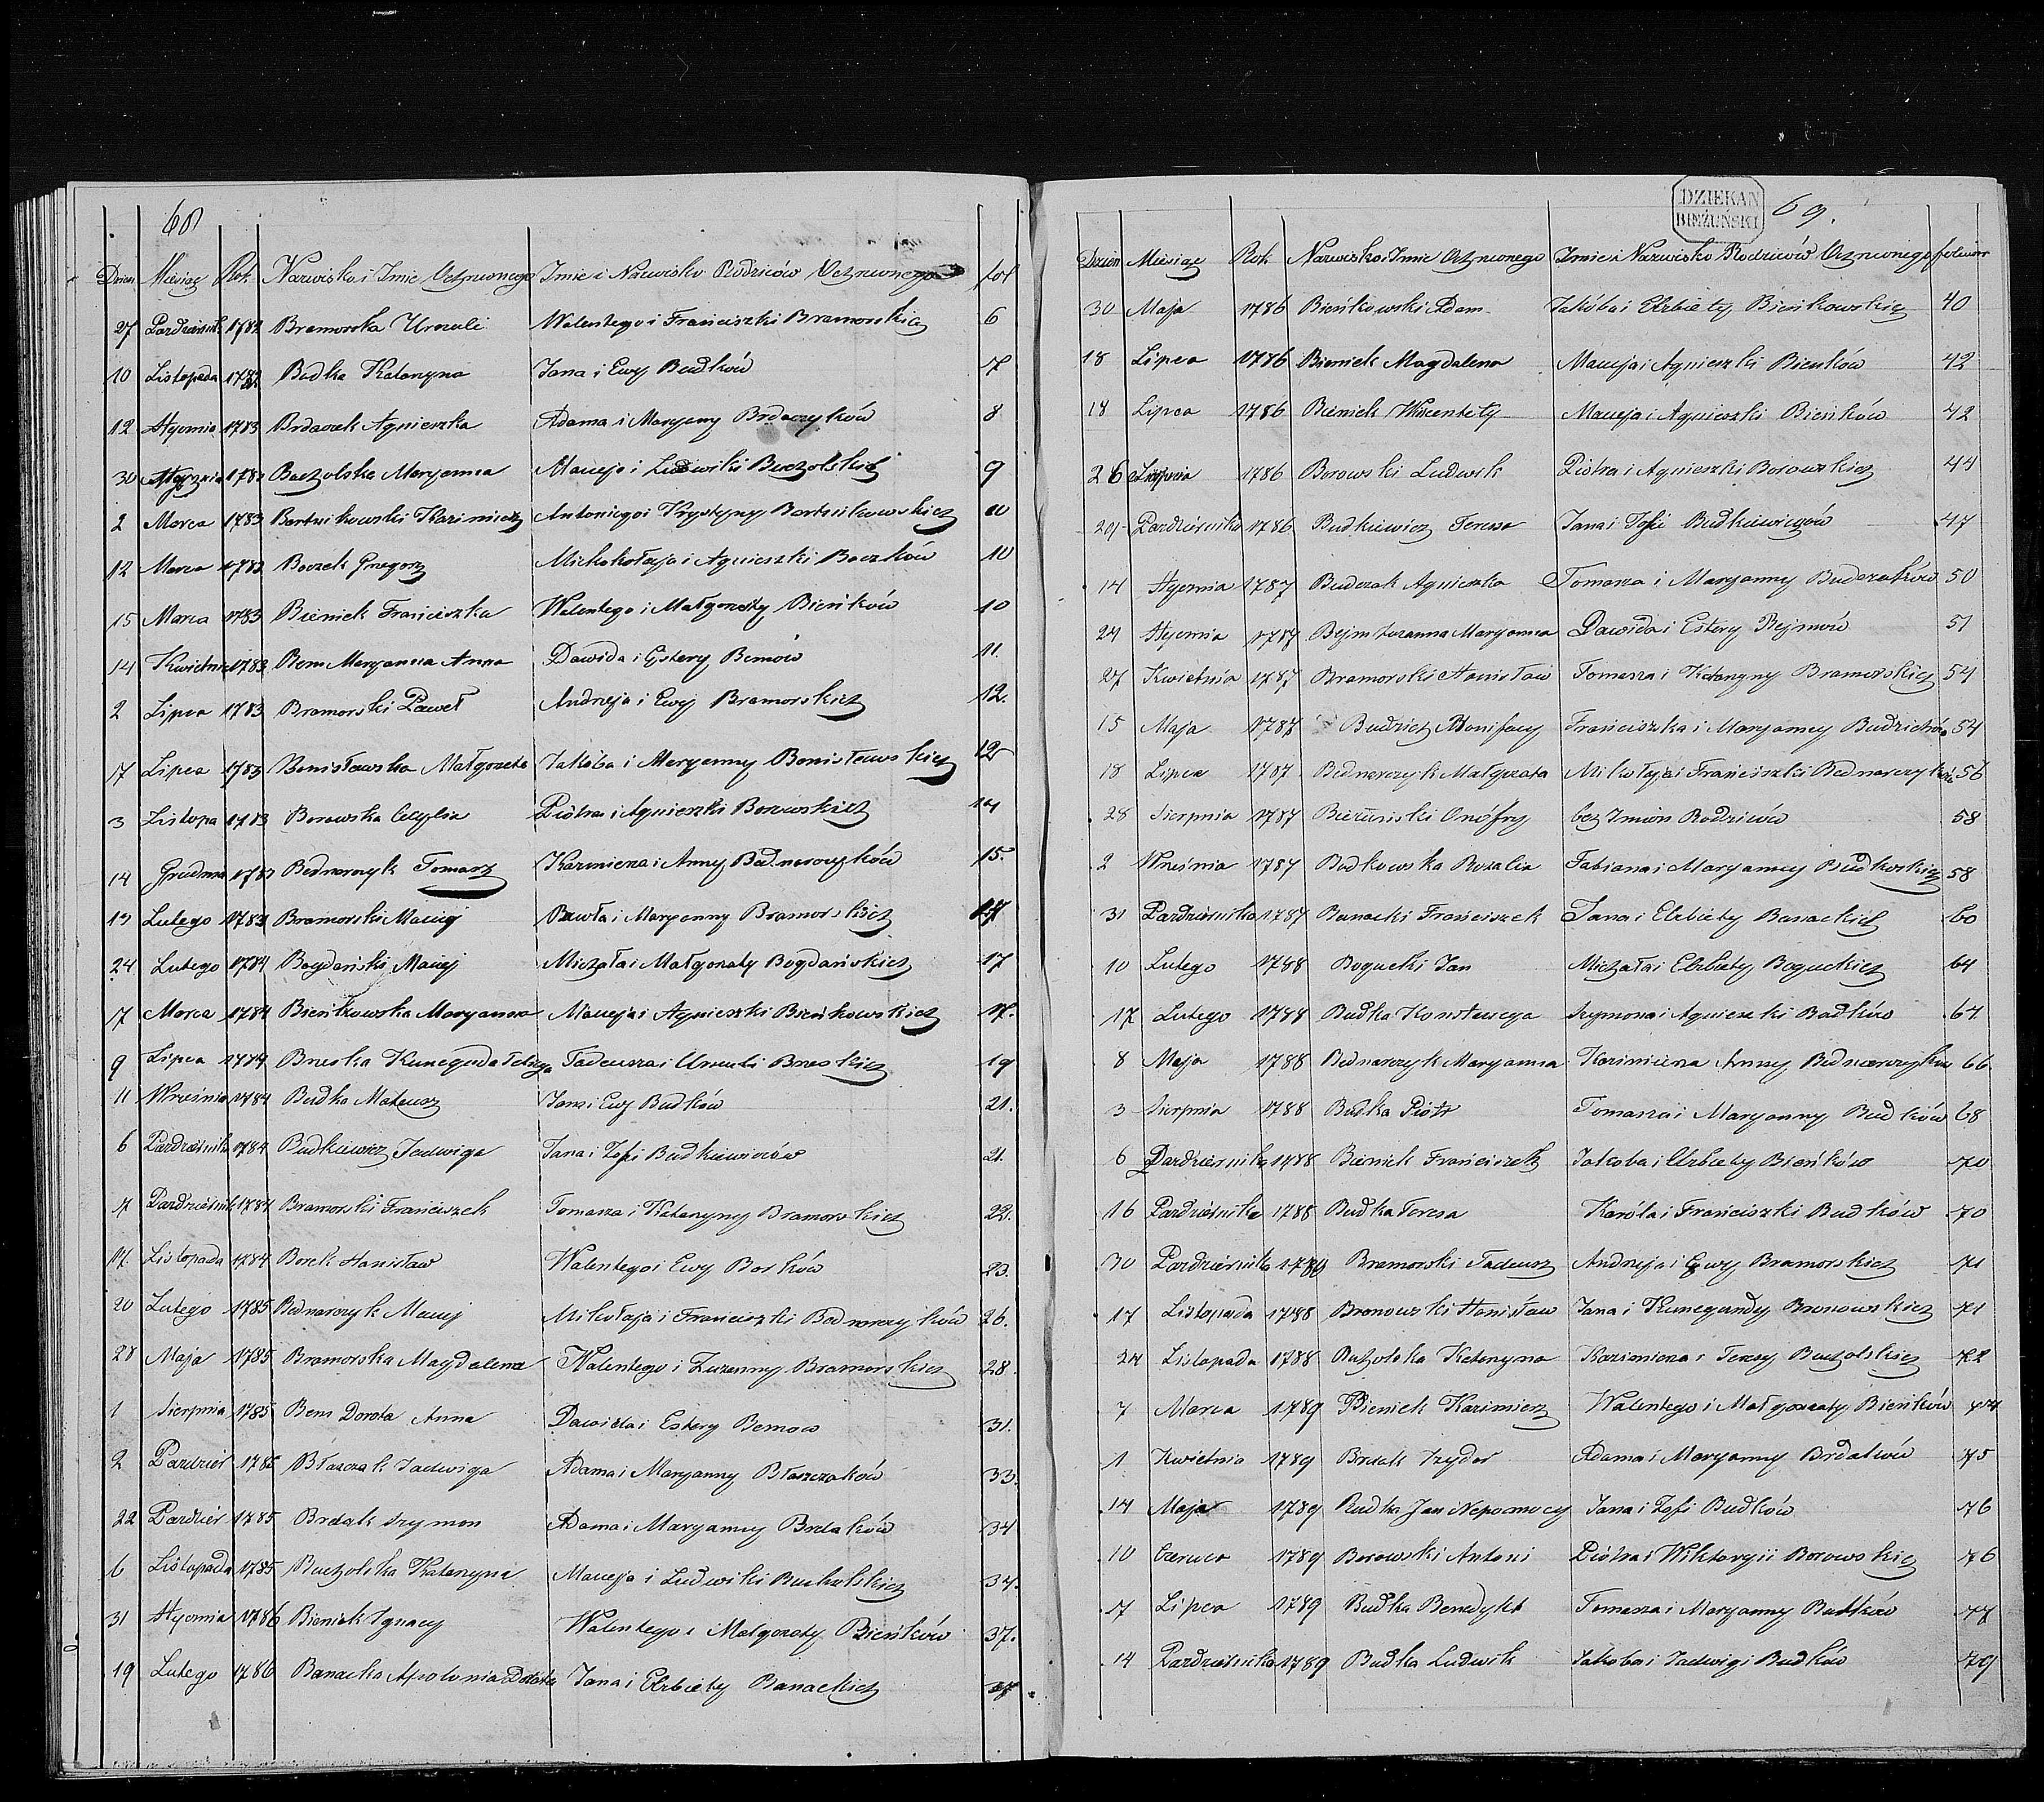 68
Dzień Miesiąc Rok Nazwisko i Imie Ochrzczonego Imie i Nazwisko Rodziców Ochrzczonego fol
27 Października 1782 Bramorska Urszuli Walentego i Franciszki Bramorskich 6
10 Listopada 1782 Budka Katarzyna Jana i Ewy Budków 7
12 Stycznia 1783 Brdaczek Agnieszka Adama i Maryany Brdaczyków 8
30 Stycznia 1783 Buczolska Maryanna Macieja i Ludwiki Buczolskich 9
2 Marca 1783 Bartnikowski Kazimierz Antoniego i Krystyny Bartnikowskich 10
12 Marca 1783 Boczek Grzegorz Michokołaja i Agnieszki Boczków 10
15 Marca 1783 Bieniek Franciszka Walentego i Małgorzaty Bieńków 10
14 Kwietnia 1783 Bem Maryanna Anna Dawida i Estery Bemów 11.
2 Lipca 1783 Bramorski Paweł Andrzeja i Ewy Bramorskich 12.
17 Lipca 1783 Bonisławska Małgorzata Jakóba i Maryanny Bonisławskich 12
3 Listopa 1783 Borowska Cecylia Piótra i Agnieszki Borowskich 14
14 Grudnia 1783 Bednarczyk Tomasz Kazimierza i Anny Bednarczyków 15.
13 Lutego 1783 Bramorski Maciej Pawła i Maryanny Bramorskich 17
24 Lutego 1784 Bogdański Maciej Michała i Małgorzaty Bogdańskich 17
17 Marca 1784 Bieńkowska Maryanna Macieja i Agnieszki Bieńkowskich 17.
9 Lipca 1784 Brzeska Kunegunda Felicya Tadeusza i Urszuli Brzeskich 19
11 Września 1784 Budka Mateusz Jana i Ewy Budków 21.
6 Października 1784 Budkiewicz Jadwiga Jana i Zofii Budkiewiczów 21.
17 Paździenik 1784 Bramorski Franciszek Tomasza i Katarzyny Bramorskich 22.
17. Listopada 1784 Borek Stanisław Walentego i Ewy Borków 23.
20 Lutego 1785 Bednarczyk Maciej Mikołaja i Franciszki Bednarczyków 26.
28 Maja 1785 Bramorska Magdalena Walentego i Zuzanny Bramorskich 28.
1 Sierpnia 1785 Bem Dorota Anna Dawida i Estery Bemow 31.
2 Paździer 1785 Błaszczak Jadwiga Adama i Maryanny Błaszczaków 33.
22 Paździer 1785 Brdak Szymon Adama i Maryanny Brdaków 34
6 Listopada 1785 Buczolska Katarzyna Macieja i Ludwiki Buchalskich 34.
31 Stycznia 1786 Bieniek Ignacy Walentego i Małgorzaty Bieńków 37.
19 Lutego 1786 Banacka Apolonia Dorota Jana i Elżbiety Banackich 37
DZIEKAN BIEŻUŃSKI
69.
Dzień Miesiąc Rok Nazwisko i Imie Ochrzczonego Imie i Nazwisko Rodziców Ochrzczonego folium
30 Maja 1786 Bieńkowski Adam Jakóba i Elżbiety Bieńkowskich 40
18 Lipca 1786 Bieniek Magdalena Macieja i Agnieszki Bieńków 42
18 Lipca 1786 Bieniek Wincentety Macieja i Agnieszki Bieńków 42
26 Sierpnia 1786 Borowski Ludwik Piótra i Agnieszki Borowskich 44
29 Października 1786 Budkiewicz Teressa Jana i Zofii Budkiewiczów 47
14 Stycznia 1787 Budczak Agnieszka Tomasza i Maryanny Budczaków 50
24 Stycznia 1787 Bejm Zuzanna Maryanna Dawida i Estery Bejmów 51
27 Kwietnia 1787 Bramorski Stanisław Tomasza i Katarzyny Bramorskich 54
15 Maja 1787 Budzich Bonifacy Franciszka i Maryanny Budzichów 54
18 Lipca 1787 Bednarczyk Małgorzata Mikołaja i Franciszki Bednarczyków 56
28 Sierpnia 1787 Bieżuński Onófry bez Imion Rodziców 58
2 Wrzśnia 1787 Budkowska Rozalia Fabiana i Maryanny Budkoskich 58
31 Października 1787 Banacki Franciszek Jana i Elżbiety Banackich 60
10 Lutego 1788 Bogucki Jan Michała i Elżbiety Boguckich 64
17 Lutego 1788 Budka Konstancya Szymona i Agnieszki Budków 64
8 Maja 1788 Bednarczyk Maryanna Kazimierza Anny Bednarczyków 66.
3 Sierpnia 1788 Budka Piotr Tomasza i Maryanny Budków 68
6 Października 1788 Bieniek Franciszek Jakoba i Elżbiety Bieńków 70
16 Października 1788 Budka Teresa Karóla i Franciszki Budków 70
30 Października 1788 Bramorski Tadeusz Andrzeja i Ewy Bramorskich 71
17 Listopada 1788 Bronowski Stanisław Jana i Kunegundy Bronowskich 71
24 Listopada 1788 Buczolska Katarzyna Kazimierza i Teresy Buczolskich 72
7 Marca 1789 Bieniek Kazimierz Walentego i Małgorzaty Bieńków 74
1 Kwietnia 1789 Brdak Izydor Adama i Maryanny Brdaków 75
14 Maja 1789 Budka Jan Nepomocy Jana i Zofi Budków 76
10 Czerwca 1789 Borowski Antoni Piótra i Wiktoryii Borowskich 76
17 Lipca 1789 Budka Benedykt Tomasza i Maryanny Budków 77
14 Października 1789 Budka Ludwik Jakoba i Jadwigi Budków 79